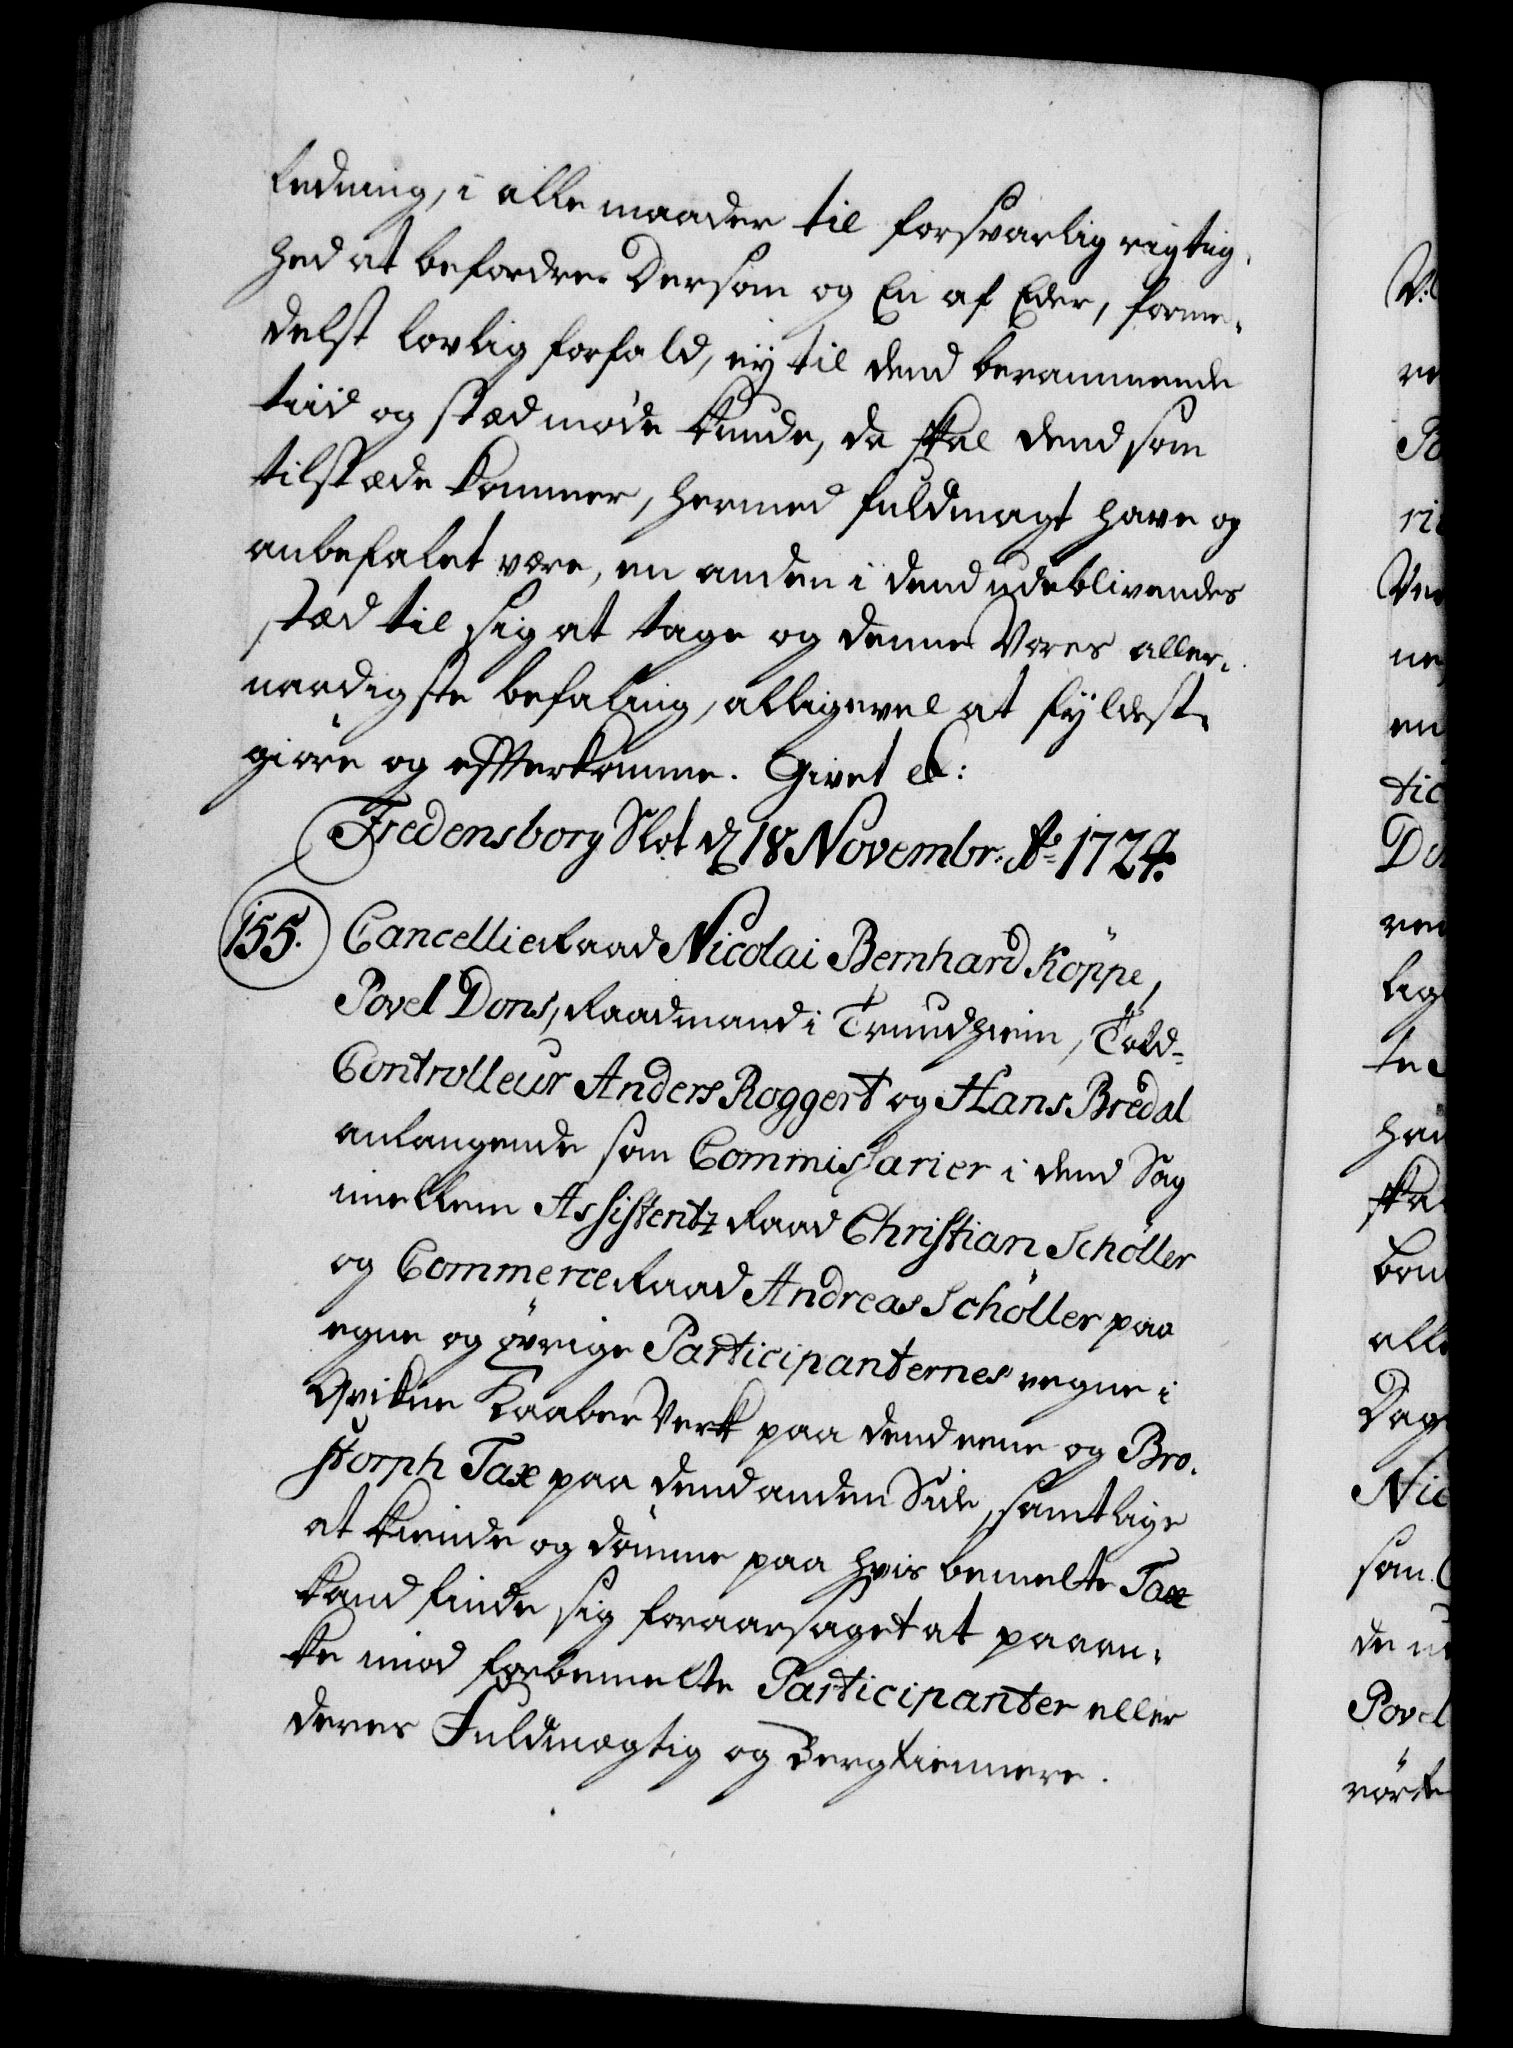 ledning, i alle maader til forsvarlig rigtig-
hed at befordre. Dersom og En af Eder, forme-
delst lovlig forfald, ej til dend berammende
tiid og stæd møde kunde, da skal dend som
tilstæde kommer, hermed fuldmagt have og
anbefalet være, en anden i dend udeblivendes
stæd til sig at tage og denne Vores aller-
naadigste befaling, alligevel at fyldest-
giöre og efterkomme. Givet &:
Fredensborg Slot d. 18 Novembr: Ao 1724.
155. Cancellie Raad Nicolai Bernhard Köppe,
Povel Dons, Raadmand i Trundhiem, Told-
Controlleur Anders Roggert og Hans Bredal
anlangende som Commissarier i dend Sag
imellem Assistentz Raad Christian Schöller
og Commerce Raad Andreas Schöller paa
egne og övrige Participanternes vegne i
Qvikne Kaaber Verk paa dend eene og Bro-
storph Tax paa dend anden Side, samtlige
at kiende og dömme paa hvis bemelte Tax
kand finde sig foraarsaget at paaan-
ke imod forbemelte Participanter eller
deres Fuldmægtig og Bergtienere.